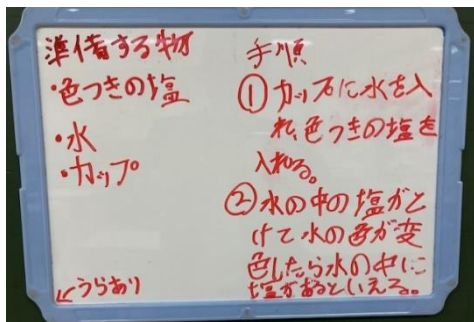 準備する物
・色つきの塩
・水
・カップ
←うらあり
手順
①カップに水を入
れ、色つきの塩を
入れる。
②水の中の塩がと
けて水の色が変
色したら水の中に
塩があるといえる。